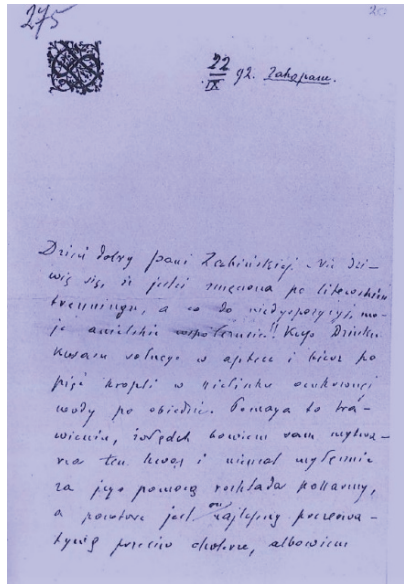 275
20
22/IX 92. Zakopane.
Dzień dobry pani Zabińskiej. Nie dzi-
wię się, że jesteś zmęczona po litewskim
trenningu, a co do niedyspozycyi, mo-
je anielskie współczucie!! Kup Dziecko
Kwasu solnego w aptece i bierz po
pięć kropli w kieliszku ocukrzonej
wody po obiedzie. Pomaga to tra-
wieniu, żołądek bowiem sam wytwa-
rza ten kwas i niemal wyłącznie
za jego pomocą rozkłada pokarmy,
a powtóre jest on najlepszą
przeciw cholerze, albowiem